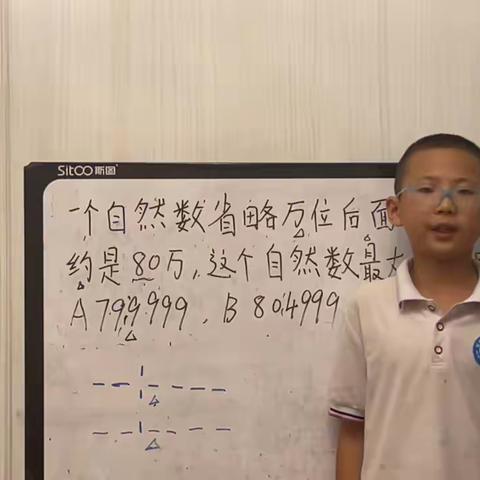 Sitoo 斯图
一个自然数省略万位后面
约是80万,这个自然数最大
A 799999, B 804999